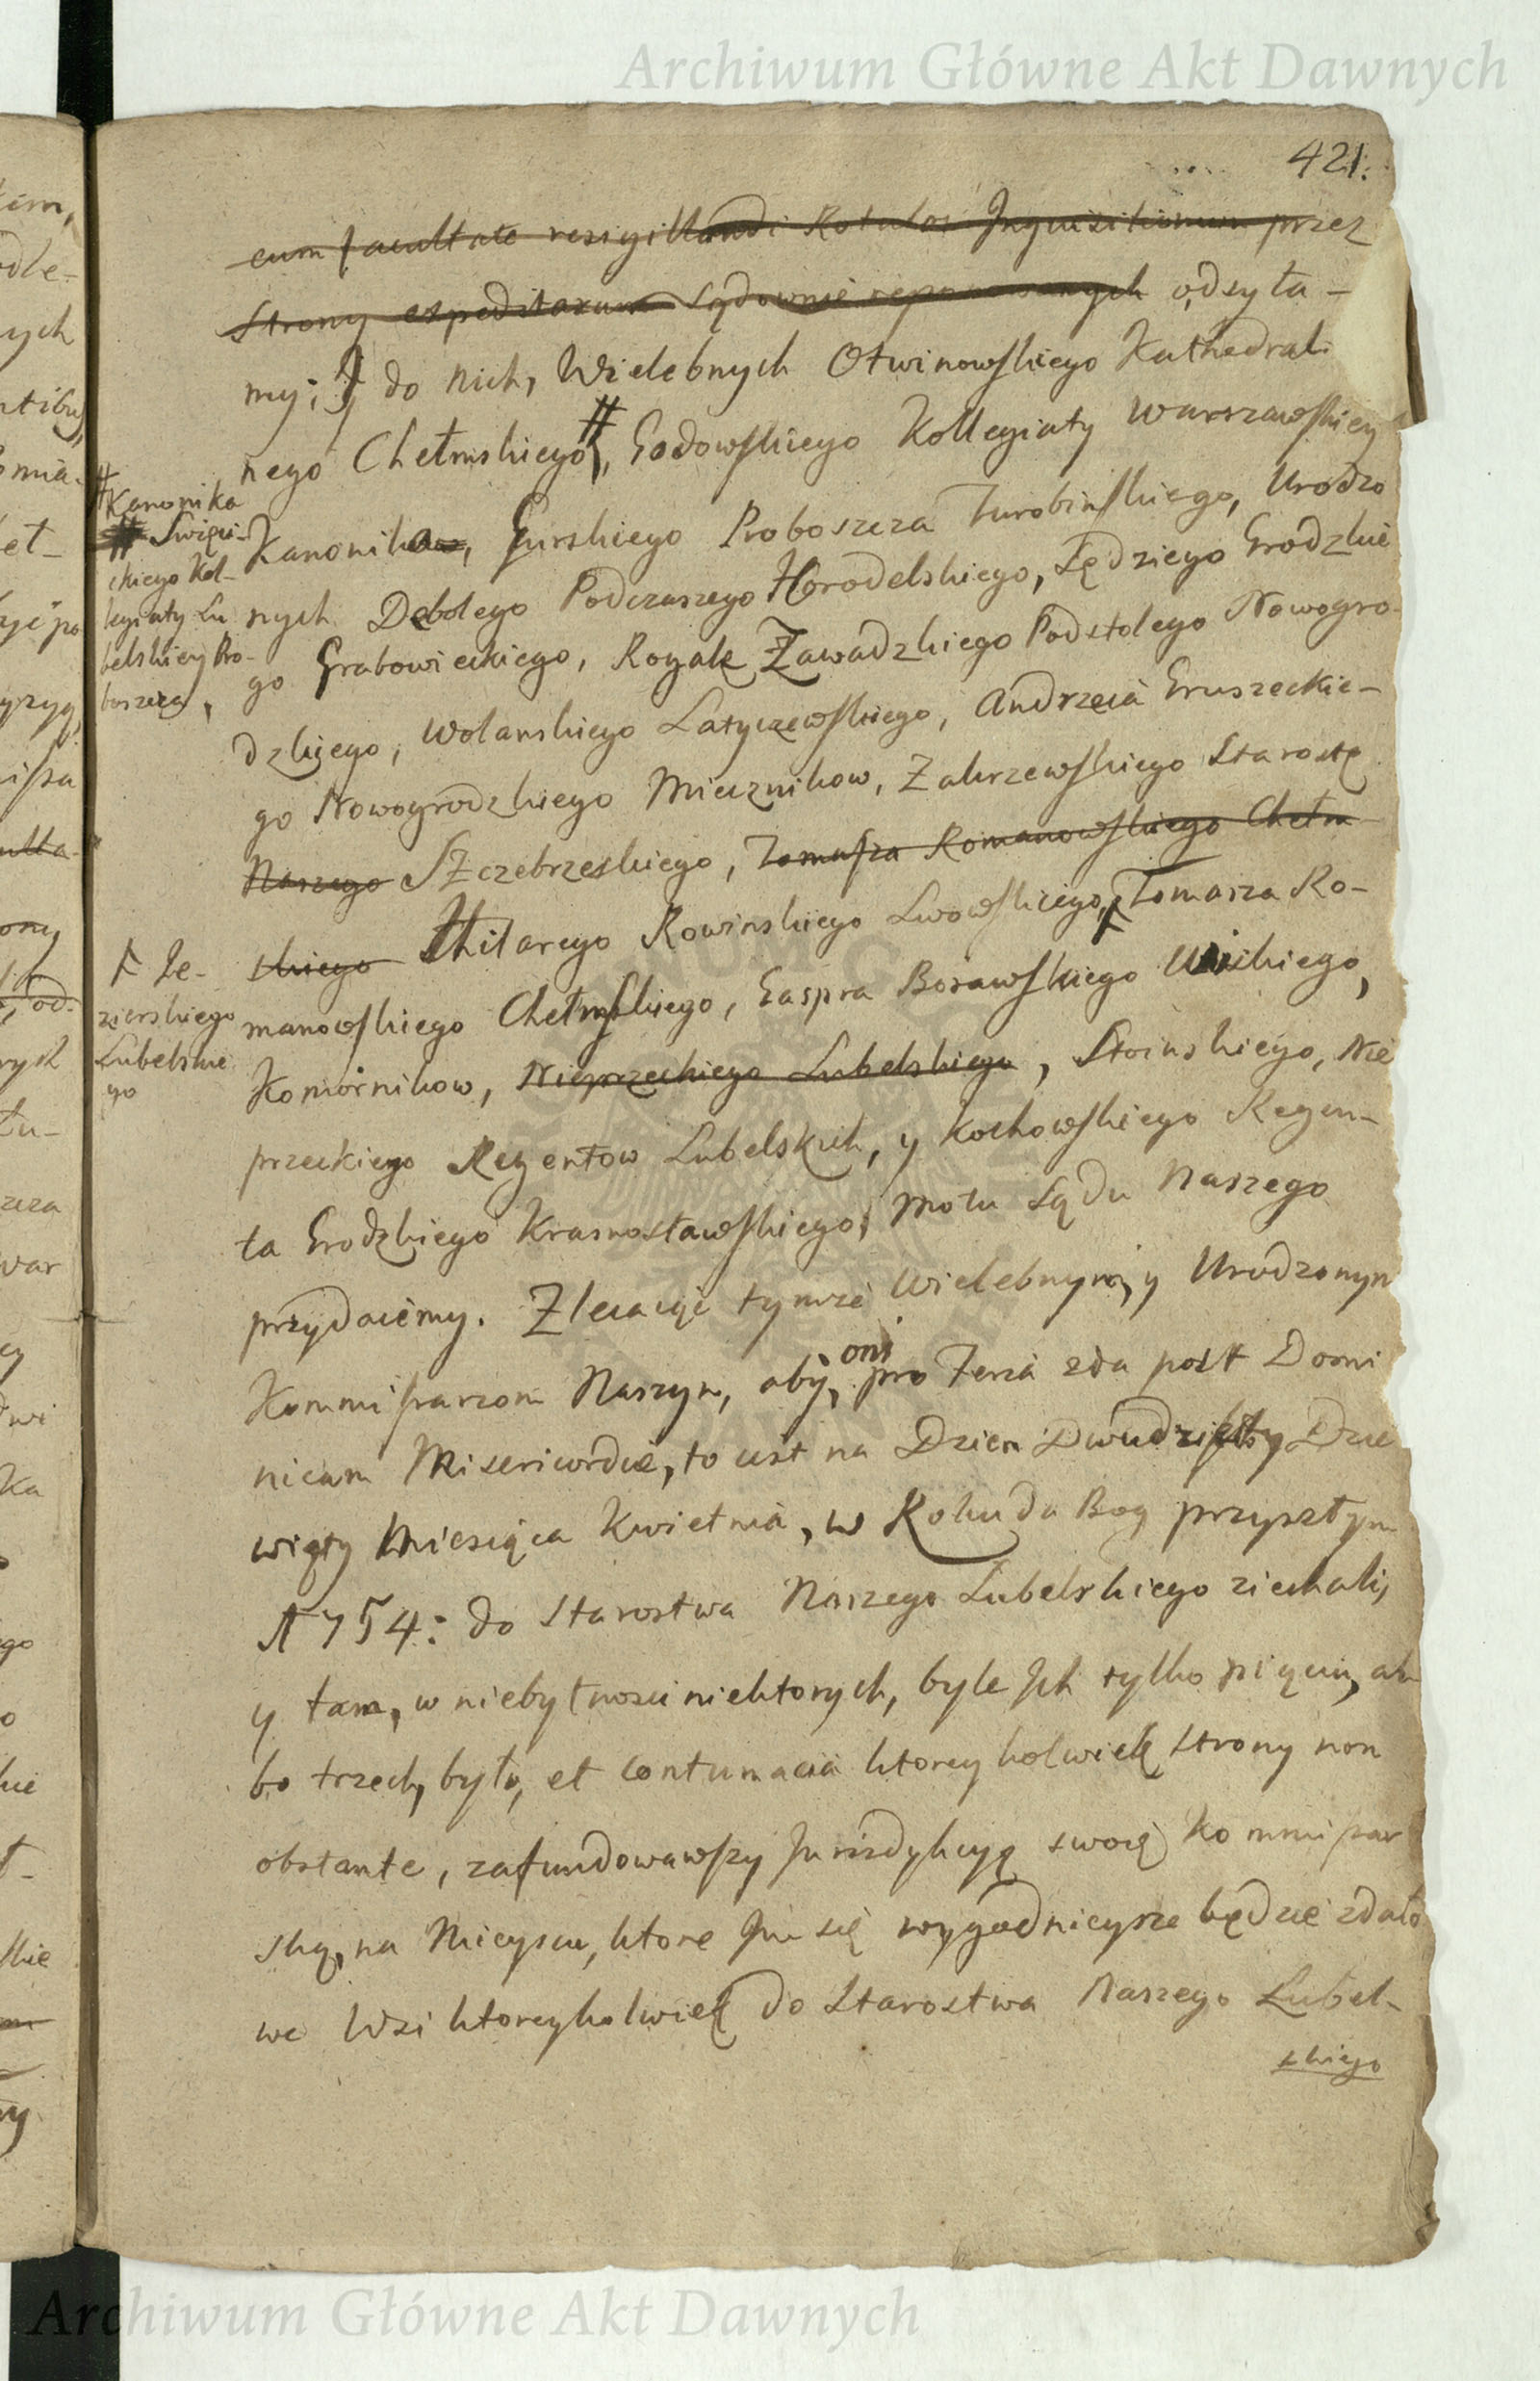 Archiwum Główne Akt Dawnych
421.
cum facultate resigillandi Rotulos Inquisitionum przez
strony expeditarum Sądownie reponowanych odsyła-
my; y do nich, Wielebnych Otwinowskiego Kathedral
nego Chełmskiego #, Godowskiego Kollegiaty Warszawskiey
Kanonika, Gurskiego Proboszcza Turobinskiego, Urodzo
nych Debolego Podczaszego Horodelskiego, Sędziego Grodzkie
go Grabowieckiego, Rogale Zawadzkiego Podstolego Nowogro
dzkiego, Wolanskiego Latyczewskiego, Andrzeia Gruszeckie-
go Nowogrodzkiego Miecznikow, Zakrzewskiego Starostę
Naszego Szczebrzeskiego, Tomasza Romanowskiego Chełm
skiego Hilarego Rowinskiego Lwowskiego, Tomasza Ro-
manowskiego Chełmskiego, Gaspra Borawskiego Wiskiego,
Komornikow, Nieprzeckiego Lubelskiego, Stoinskiego, Nie
przeckiego Regentow Lubelskich, y Kochowskiego Regen-
ta Grodzkiego Krasnostawskiego, Motu Sądu Naszego
przydaiemy. Zlecaiąc tymże Wielebnym, y Urodzonym
Kommissarzom Naszym, aby, oni pro Feria 2da post Domi
nicam Misericordiæ, to iest na Dzien Dwudziesty Dzie
wiąty Miesiąca Kwietnia, w Roku da Bog przyszłym
1754: do Starostwa Naszego Lubelskiego ziechali,
y tam, w niebytnosci niektorych, byle Ich tylko pięciu, al
bo trzech, było, et contumacia ktoreykolwiek strony non
obstante, zafundowawszy Jurisdykcyą swoię Kommissar
ską, na Mieyscu, ktore Im się wygodnieysze będzie zdało
we Wsi ktoreykolwiek do Starostwa Naszego Lubel-
skiego
# Kanonika
# Swięci-
ckiego Kol-
legiaty Lu
belskiey Pro-
boszcza,
Ie-
zierskiego
Lubelskie
go
Archiwum Główne Akt Dawnych